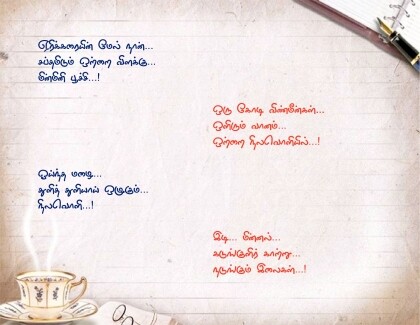 ஏரிக்கரையின் மேல் நான்...
சப்தமிடும் ஒற்றை விளக்கு...
மின்மினி பூச்சி...!
ஒரு கோடி விண்மீன்கள்...
ஒளிரும் வானம்...
ஒற்றை நிலவொளியில்...!
ஓய்ந்த மழை...
துளித் துளியாய் ஒழுகும்...
நிலவொளி...!
இடி... மின்னல்...
கடுங்குளிர் காற்று...
நடுங்கும் இலைகள்...!